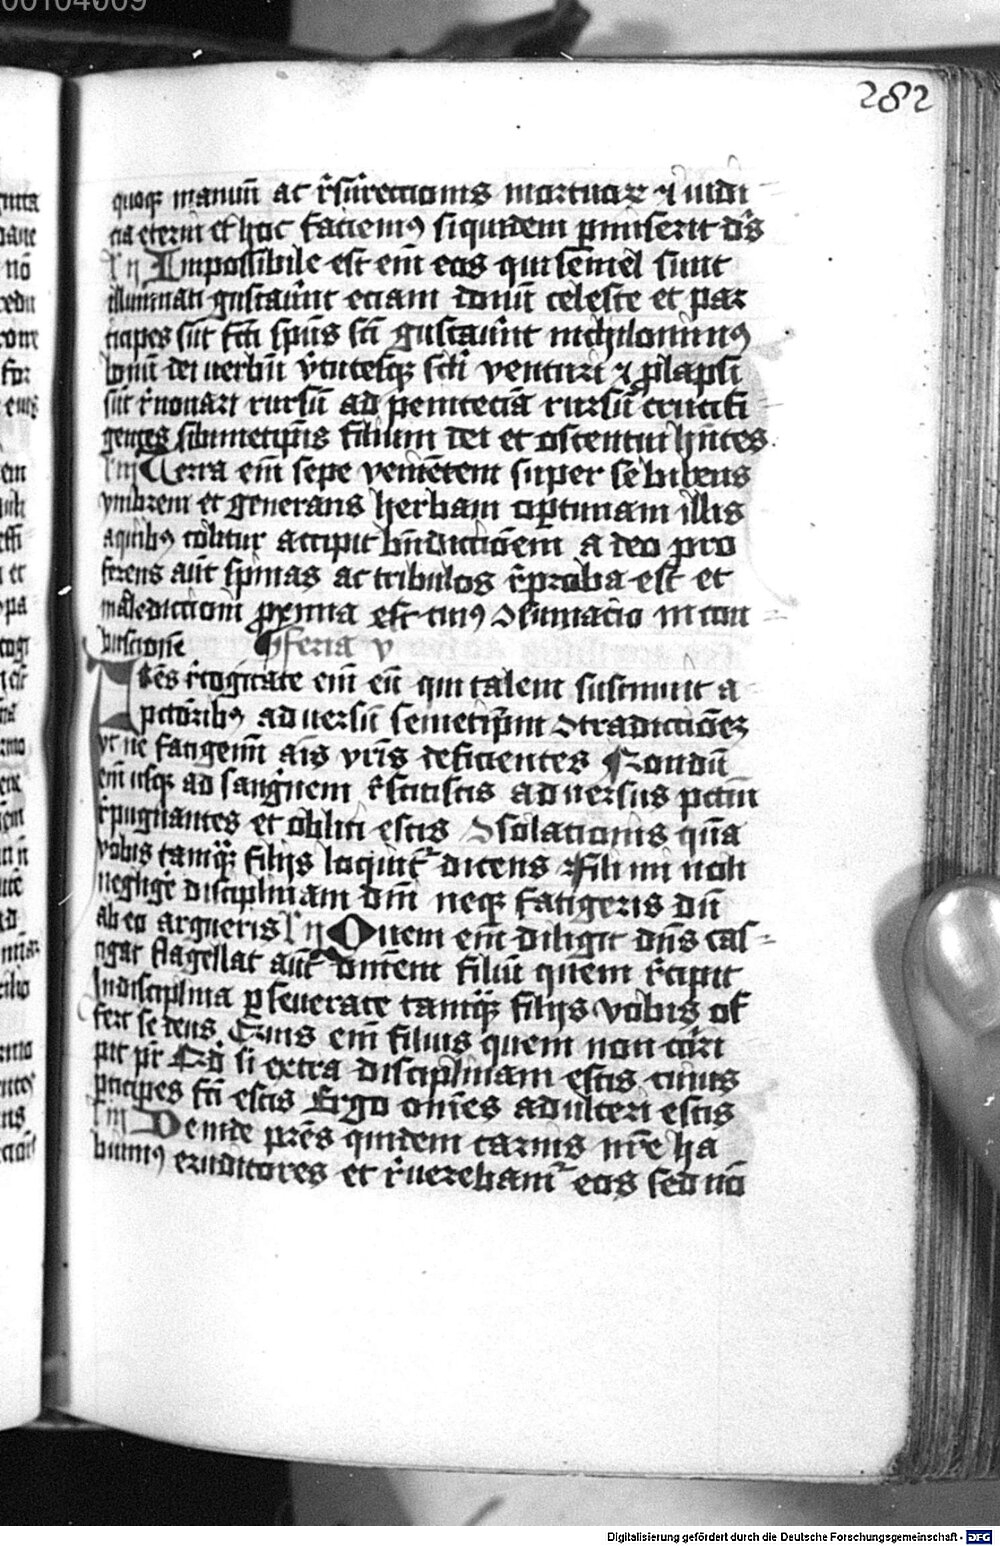 00104009
282
quoqꝫ manuū ac r̄surrectionis mortuoꝝ ⁊ iudi-
cii eterni et hoc faciemꝰ siquidem ꝑmiserit dꝰs
l' ij Impossibile est em̄ eos qui semel sunt
illuminati gustaūnt eciam donū celeste et par
ticipes sūt fcī spūs scī gustauūt nichilominꝰ
bonū dei uerbū v̓tutesqꝫ scłi venturi ⁊ ꝓlapsi
sūt r̄nouari rursū ad penitēciā rursū crucifi-
gentes sibimetipīs filium dei et ostentui hn̄tes
l' iij Terra em̄ sepe venientem super se bibens
ymbrem et generans herbam optimam illis
a quibꝰ colitur accipit bn̄dictiōem a deo pro
ferens aūt spinas ac tribulos r̄proba est et
maledictioni ꝓxima est cuiꝰ ↄsumacio in com-
bustionē ¶ Feria v
Fr̄es r̄cogitate em̄ eū qui talem sustinuit a
pctōribꝰ aduersū semetipm̄ ↄtradictiōeꝫ
vt ne fatigemī aīs vrīs deficientes Nondū
em̄ usqꝫ ad sanguinem r̄stitistis aduersus pctm̄
r̄pugnantes et obliti estis ↄsolationis que
vobis tamqꝫ filijs loquit᷑ dicens Fili mi noli
neglige̓ disciplinam dnī neqꝫ fatigeris dū
ab eo argueris l' ij Quem em̄ diligit dn̄s cas-
tigat flagellat aūt om̄em filiū quem r̄cipit
In disciplina ꝑseuerate tamqꝫ filijs vobis of
fert se deus Quis em̄ filius quem non cōri
pit pr̄ Qd̓ si extra disciplinam estis cuius
ꝑticipes fcī estis Ergo om̄es adulteri estis
l' iij Deinde pr̄es quidem carnis nr̄e ha
buimꝰ eruditores et r̄uerebam᷑ eos sed nō
Digitalisierung gefördert durch die Deutsche Forschungsgemeinschaft - DFG